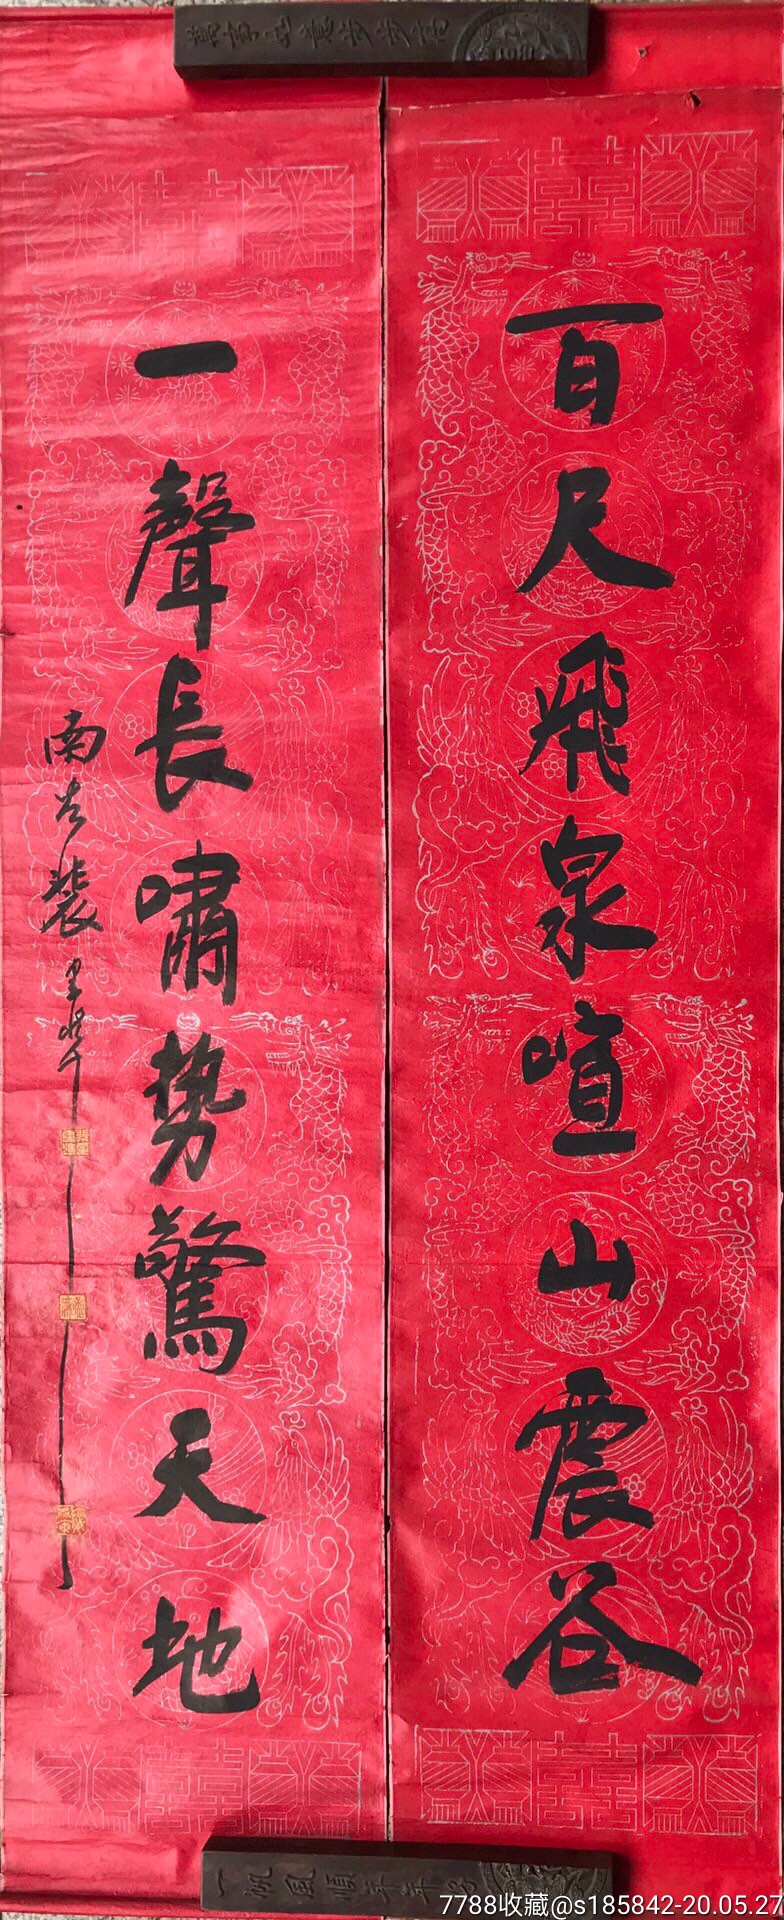 百尺飛泉喧山震谷
一聲長嘯勢驚天地
南
裴
一帆風順年年好
7788收藏@s185842-20.05.27